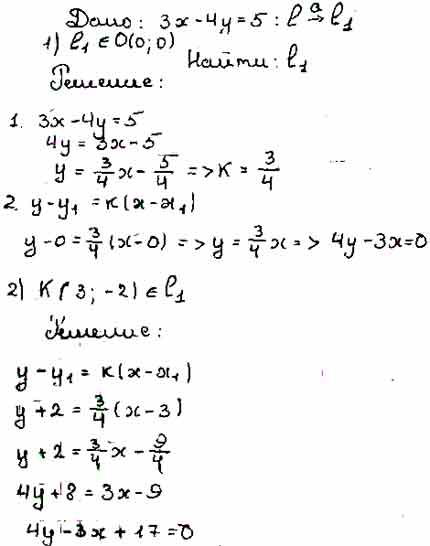 Дано: 3x-4y=5 : l →ᵃ l₁
1) l₁ ∈ O(0;0)
Найти: l₁
Решение:
1. 3x-4y=5
4y=3x-5
y = 3/4 x - 5/4 => K = 3/4
2. y-y₁ = K(x-x₁)
y-0 = 3/4 (x-0) => y = 3/4 x => 4y-3x=0
2) K(3; -2) ∈ l₁
Решение:
y-y₁ = K(x-x₁)
y+2 = 3/4 (x-3)
y+2 = 3/4 x - 9/4
4y+8 = 3x-9
4y-3x+17=0